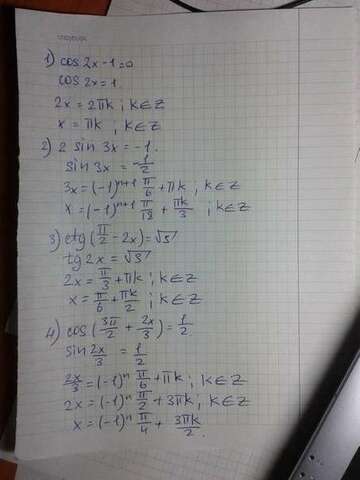 1) cos 2x - 1 = 0
cos 2x = 1
2x = 2πk ; k ∈ Z
x = πk ; k ∈ Z
2) 2 sin 3x = -1
sin 3x = -1/2
3x = (-1)^(n+1) π/6 + πk ; k ∈ Z
x = (-1)^(n+1) π/18 + πk/3 ; k ∈ Z
3) ctg (π/2 - 2x) = √3
tg 2x = √3
2x = π/3 + πk ; k ∈ Z
x = π/6 + πk/2 ; k ∈ Z
4) cos (3π/2 + 2x/3) = 1/2
sin 2x/3 = 1/2
2x/3 = (-1)^n π/6 + πk ; k ∈ Z
2x = (-1)^n π/2 + 3πk ; k ∈ Z
x = (-1)^n π/4 + 3πk/2 .